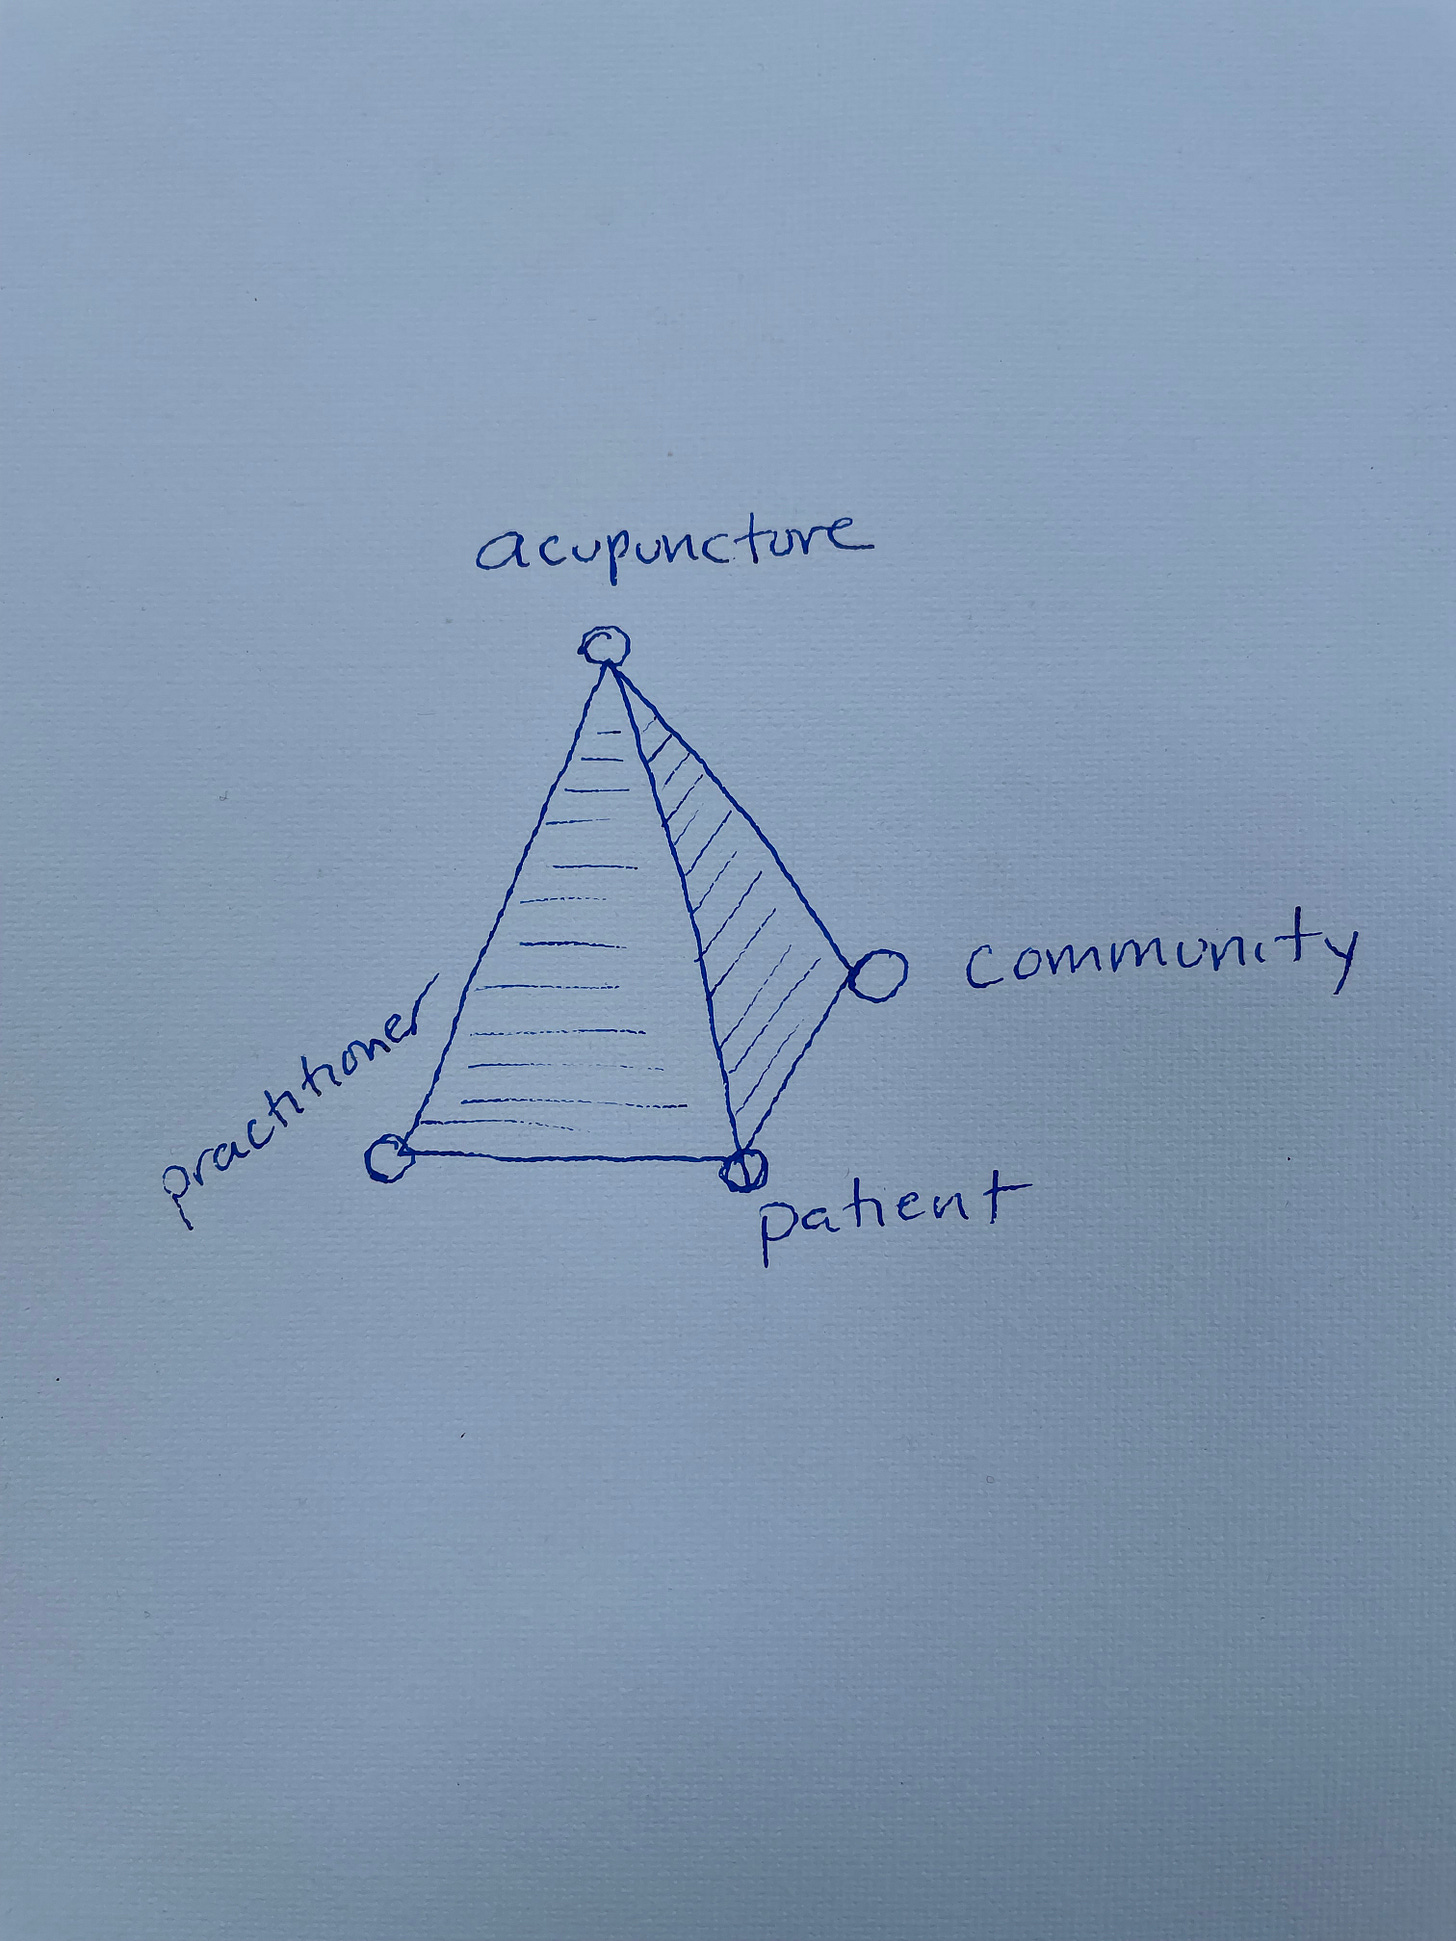 acupuncture
community
practitioner
patient